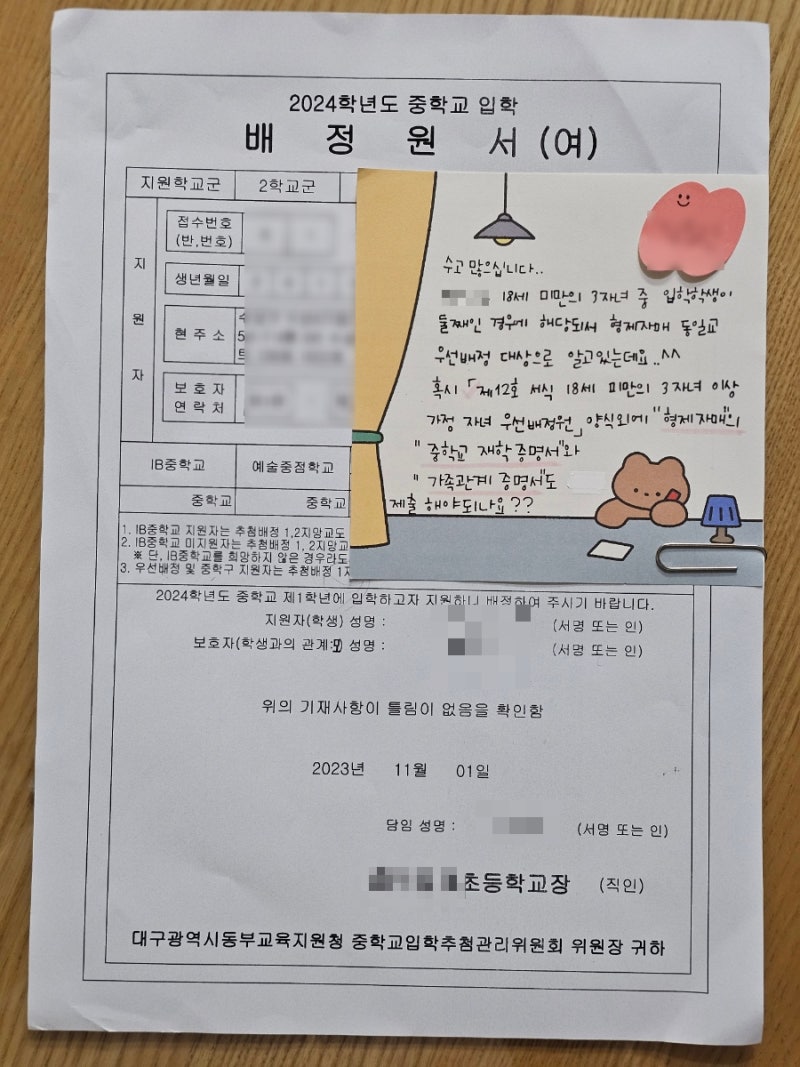 2024학년도 중학교 입학
배 정 원 서 (여)
지원학교군 2학교군
지 원 자
접수번호
(반,번호)
생년월일
현 주 소
보 호 자
연 락 처
IB중학교 예술중점학교
중학교 중학교
1. IB중학교 지원자는 추첨배정 1,2지망교도
2. IB중학교 미지원자는 추첨배정 1, 2지망교
※ 단, IB중학교를 희망하지 않은 경우라도
3. 우선배정 및 중학구 지원자는 추첨배정 1지
수고 많으십니다..
18세 미만의 3자녀 중 입학학생이
둘째인 경우에 해당되서 형제자매 동일교
우선배정 대상으로 알고있는데요..^^
혹시 「제12호 서식 18세 미만의 3자녀 이상
가정 자녀 우선배정원」 양식외에 "형제자매"의
"중학교 재학증명서"와
"가족관계 증명서"도
제출 해야되나요??
2024학년도 중학교 제1학년에 입학하고자 지원하니 배정하여 주시기 바랍니다.
지원자(학생) 성명 : (서명 또는 인)
보호자(학생과의 관계: 모) 성명 : (서명 또는 인)
위의 기재사항이 틀림이 없음을 확인함
2023년 11월 01일
담임 성명 : (서명 또는 인)
초등학교장 (직인)
대구광역시동부교육지원청 중학교입학추첨관리위원회 위원장 귀하